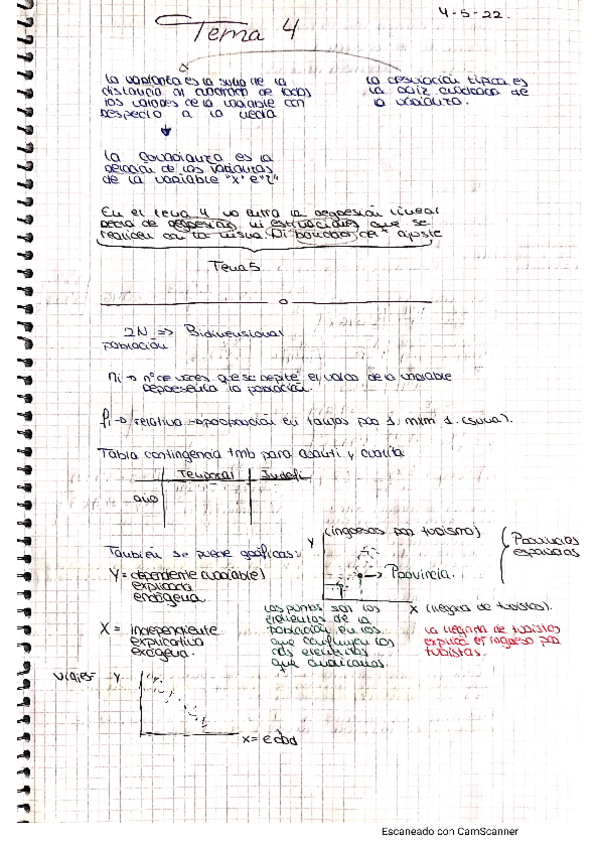 4-5-22.
Tema 4
La varianza es la suma de la
distancia al cuadrado de todos
los valores de la variable con
respecto a la media
La desviación típica es
la raíz cuadrada de
la varianza.
La covarianza es la
relación de las varianzas
de la variable "X" e "Y"
En el tema 4 no entra la regresión lineal
recta de regresión, ni estimaciones que se
realicen con la misma. Ni bondad del ajuste
Tema 5
2N => Bidimensional
población
ni → nº de veces que se repite el valor de la variable
representa la población.
fi → relativa → proporción en tantos por 1. mxm 1. (suma).
Tabla contingencia tmb para cuanti y cualita
Temporal Indefi
año
También se puede gráficas:
Y = dependiente (variable)
explicada
endógena
X = independiente
explicativa
exógena.
Y (ingresos por turismo)
Provincia.
X (llegada de turistas).
Provincias
españolas
Los puntos son los
elementos de la
población en los
que confluyen los
dos elementos
que analizamos
La llegada de turistas
explica el ingreso por
turistas.
viajes Y
X = edad
Escaneado con CamScanner